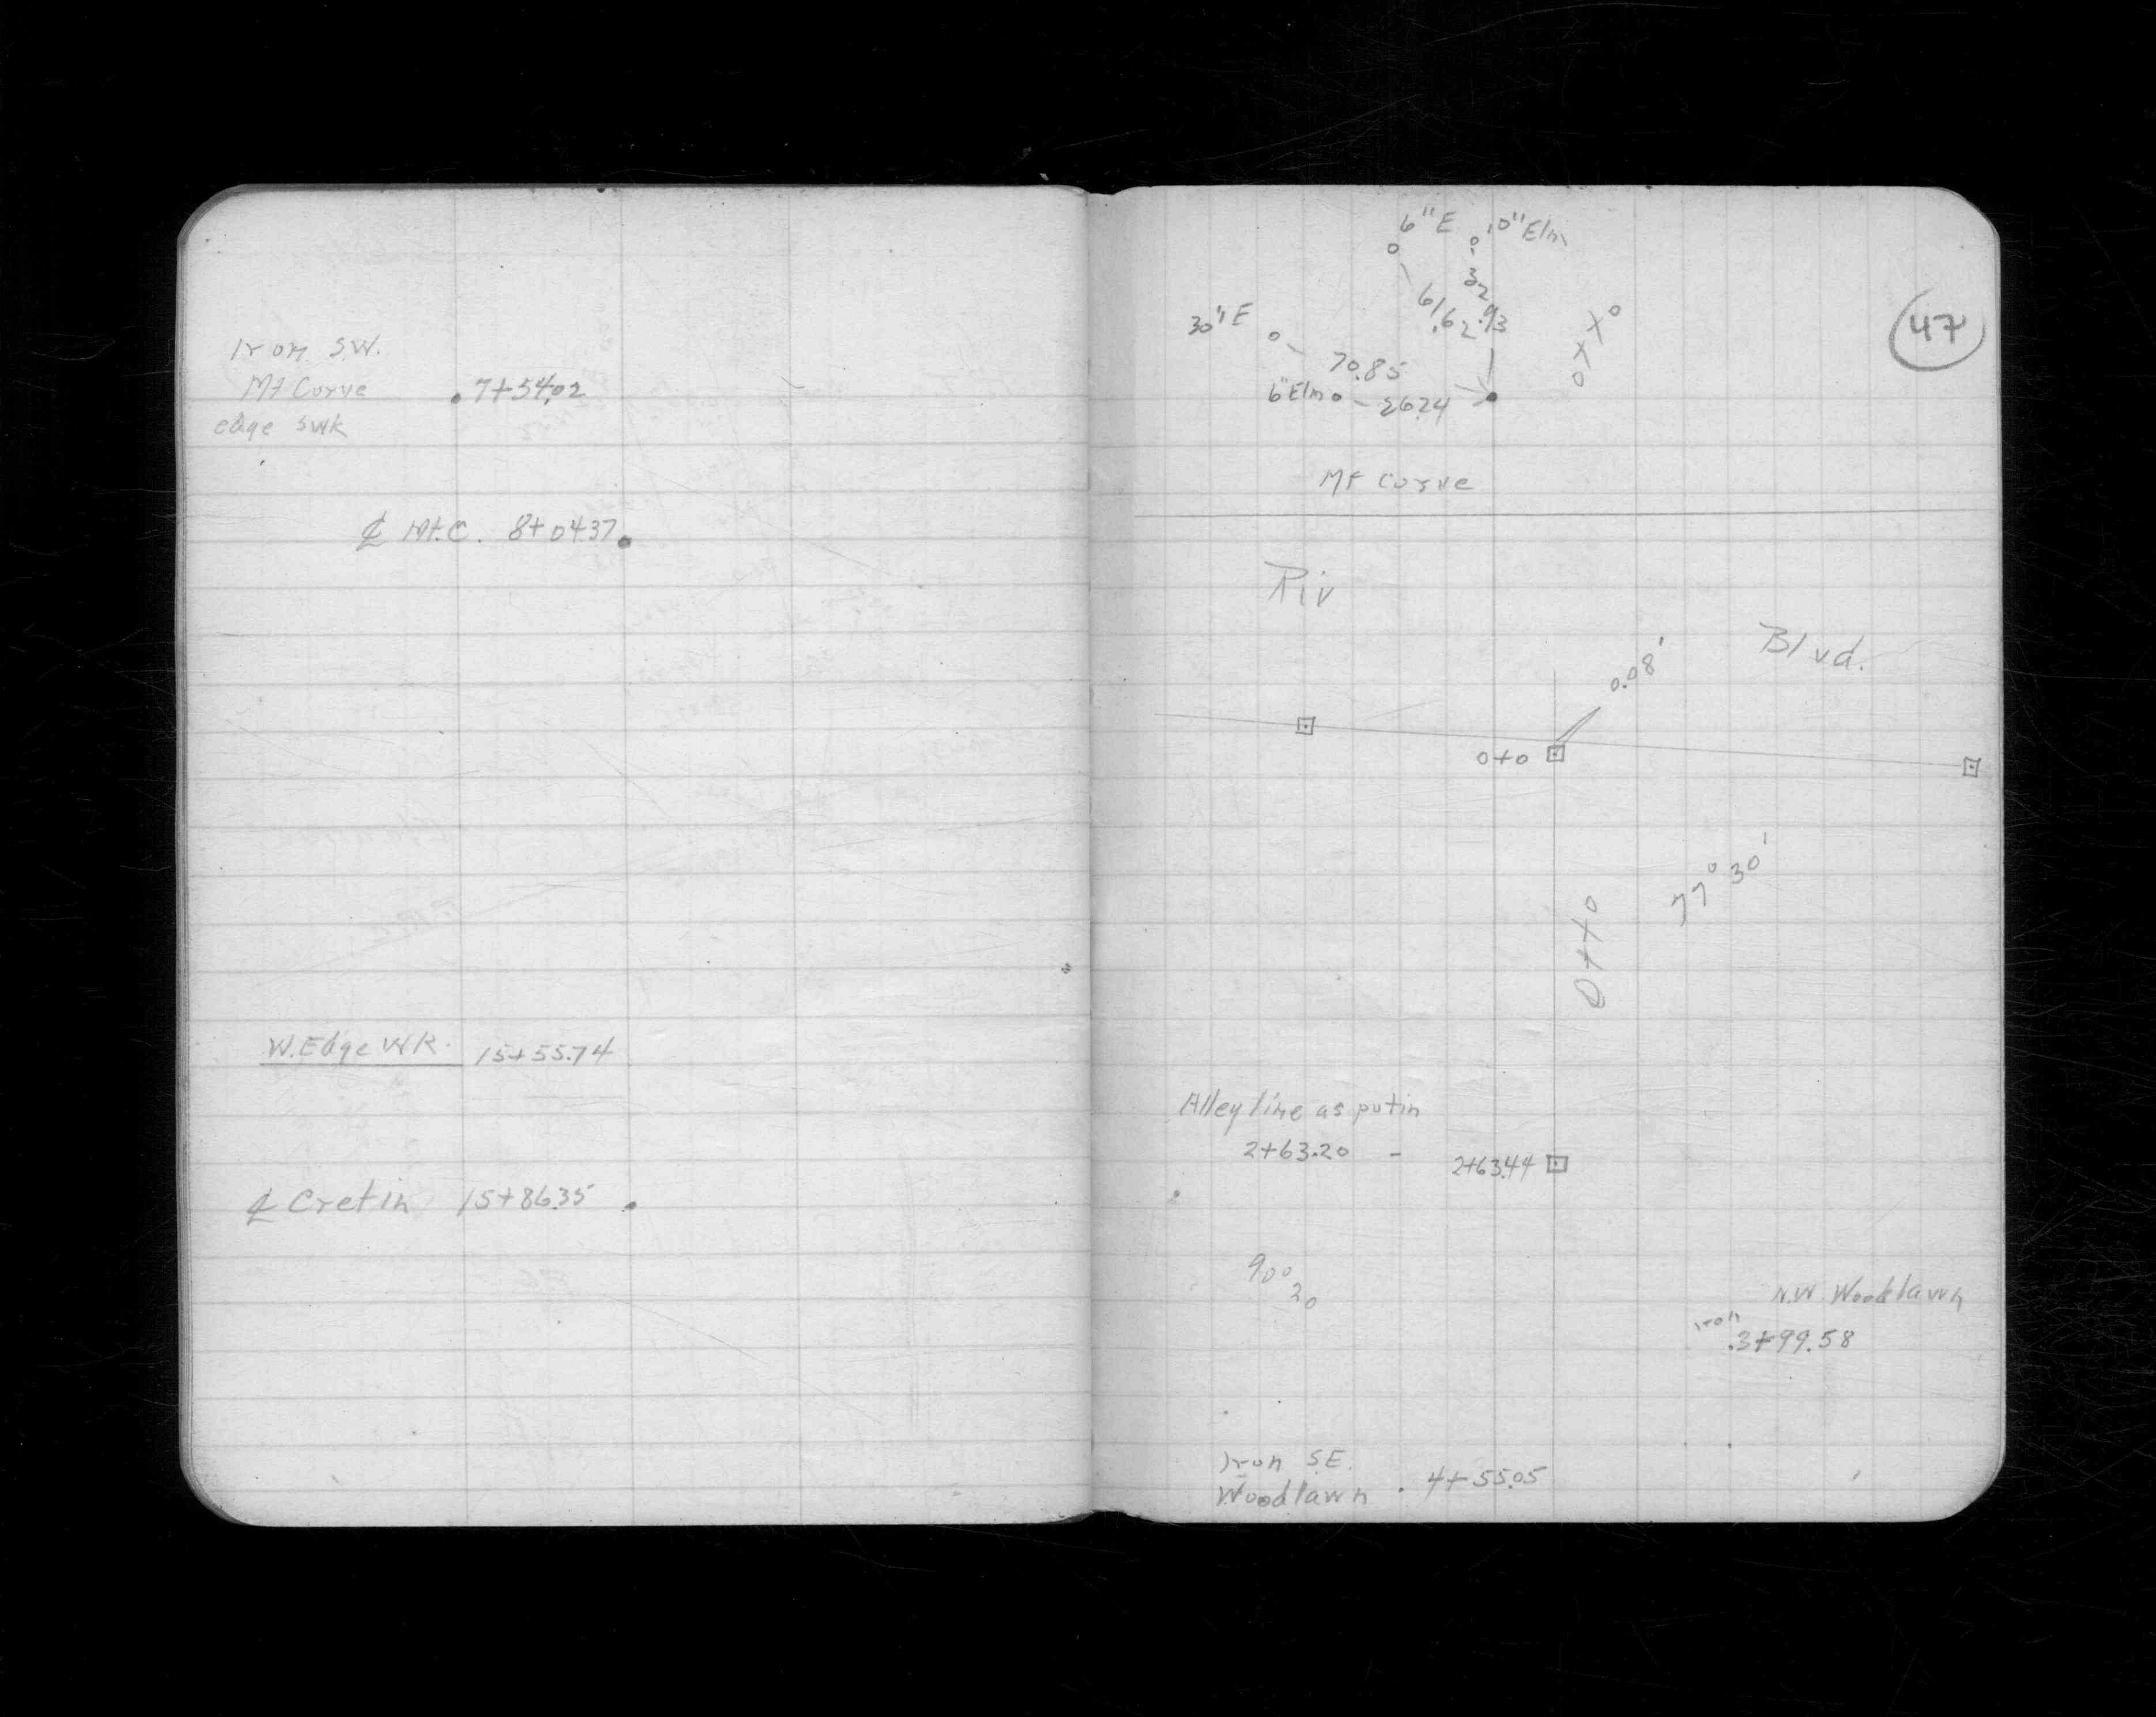 Iron S.W.
Mt Curve . 7+54.02
edge swk
℄ Mt.C. 8+04.37
W.Edge WK. 15+55.74
℄ Cretin 15+86.35
47
6" E
10" Elm
32.93
61.62
30" E
70.85
6" Elm
26.24
Otto
Mt Curve
Riv
Blvd.
0.08'
0+0
77° 30'
Otto
Alley line as put in
2+63.20 - 2+63.44
90° 20
N.W. Woodlawn
iron
.3+99.58
Iron S.E.
Woodlawn . 4+55.05